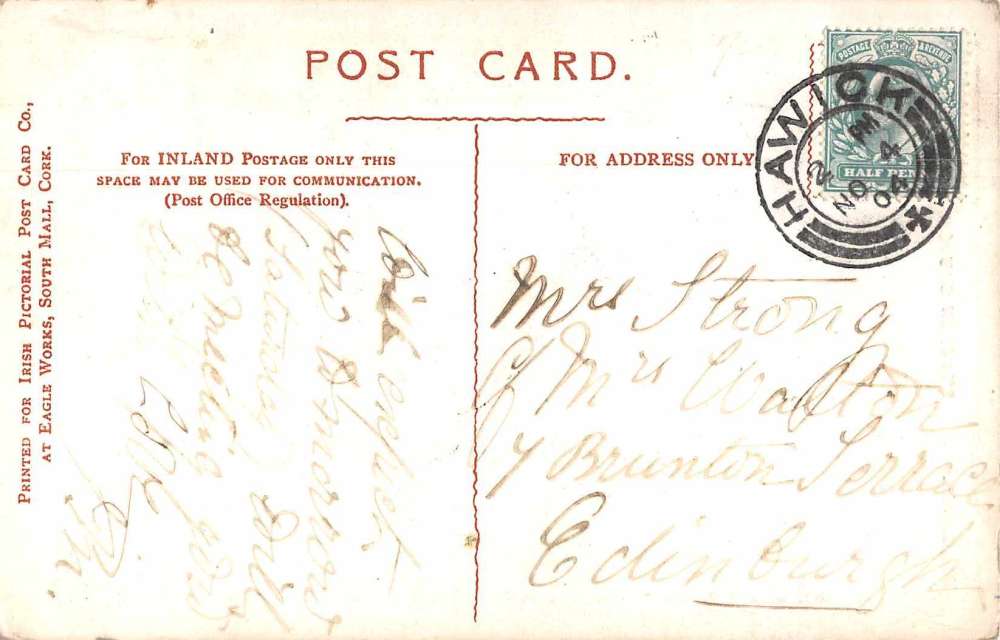 POST CARD.
PRINTED FOR IRISH PICTORIAL POST CARD Co.,
AT EAGLE WORKS, SOUTH MALL, CORK.
FOR INLAND POSTAGE ONLY THIS
SPACE MAY BE USED FOR COMMUNICATION.
(Post Office Regulation).
FOR ADDRESS ONLY
POSTAGE & REVENUE
HALF PEN
HAWICK
PM
4
NO 2
04
Mrs Strong
c/ Mrs Walton
7 Brunton Terrace
Edinburgh
Will expect
you tomorrow
will
be meeting you